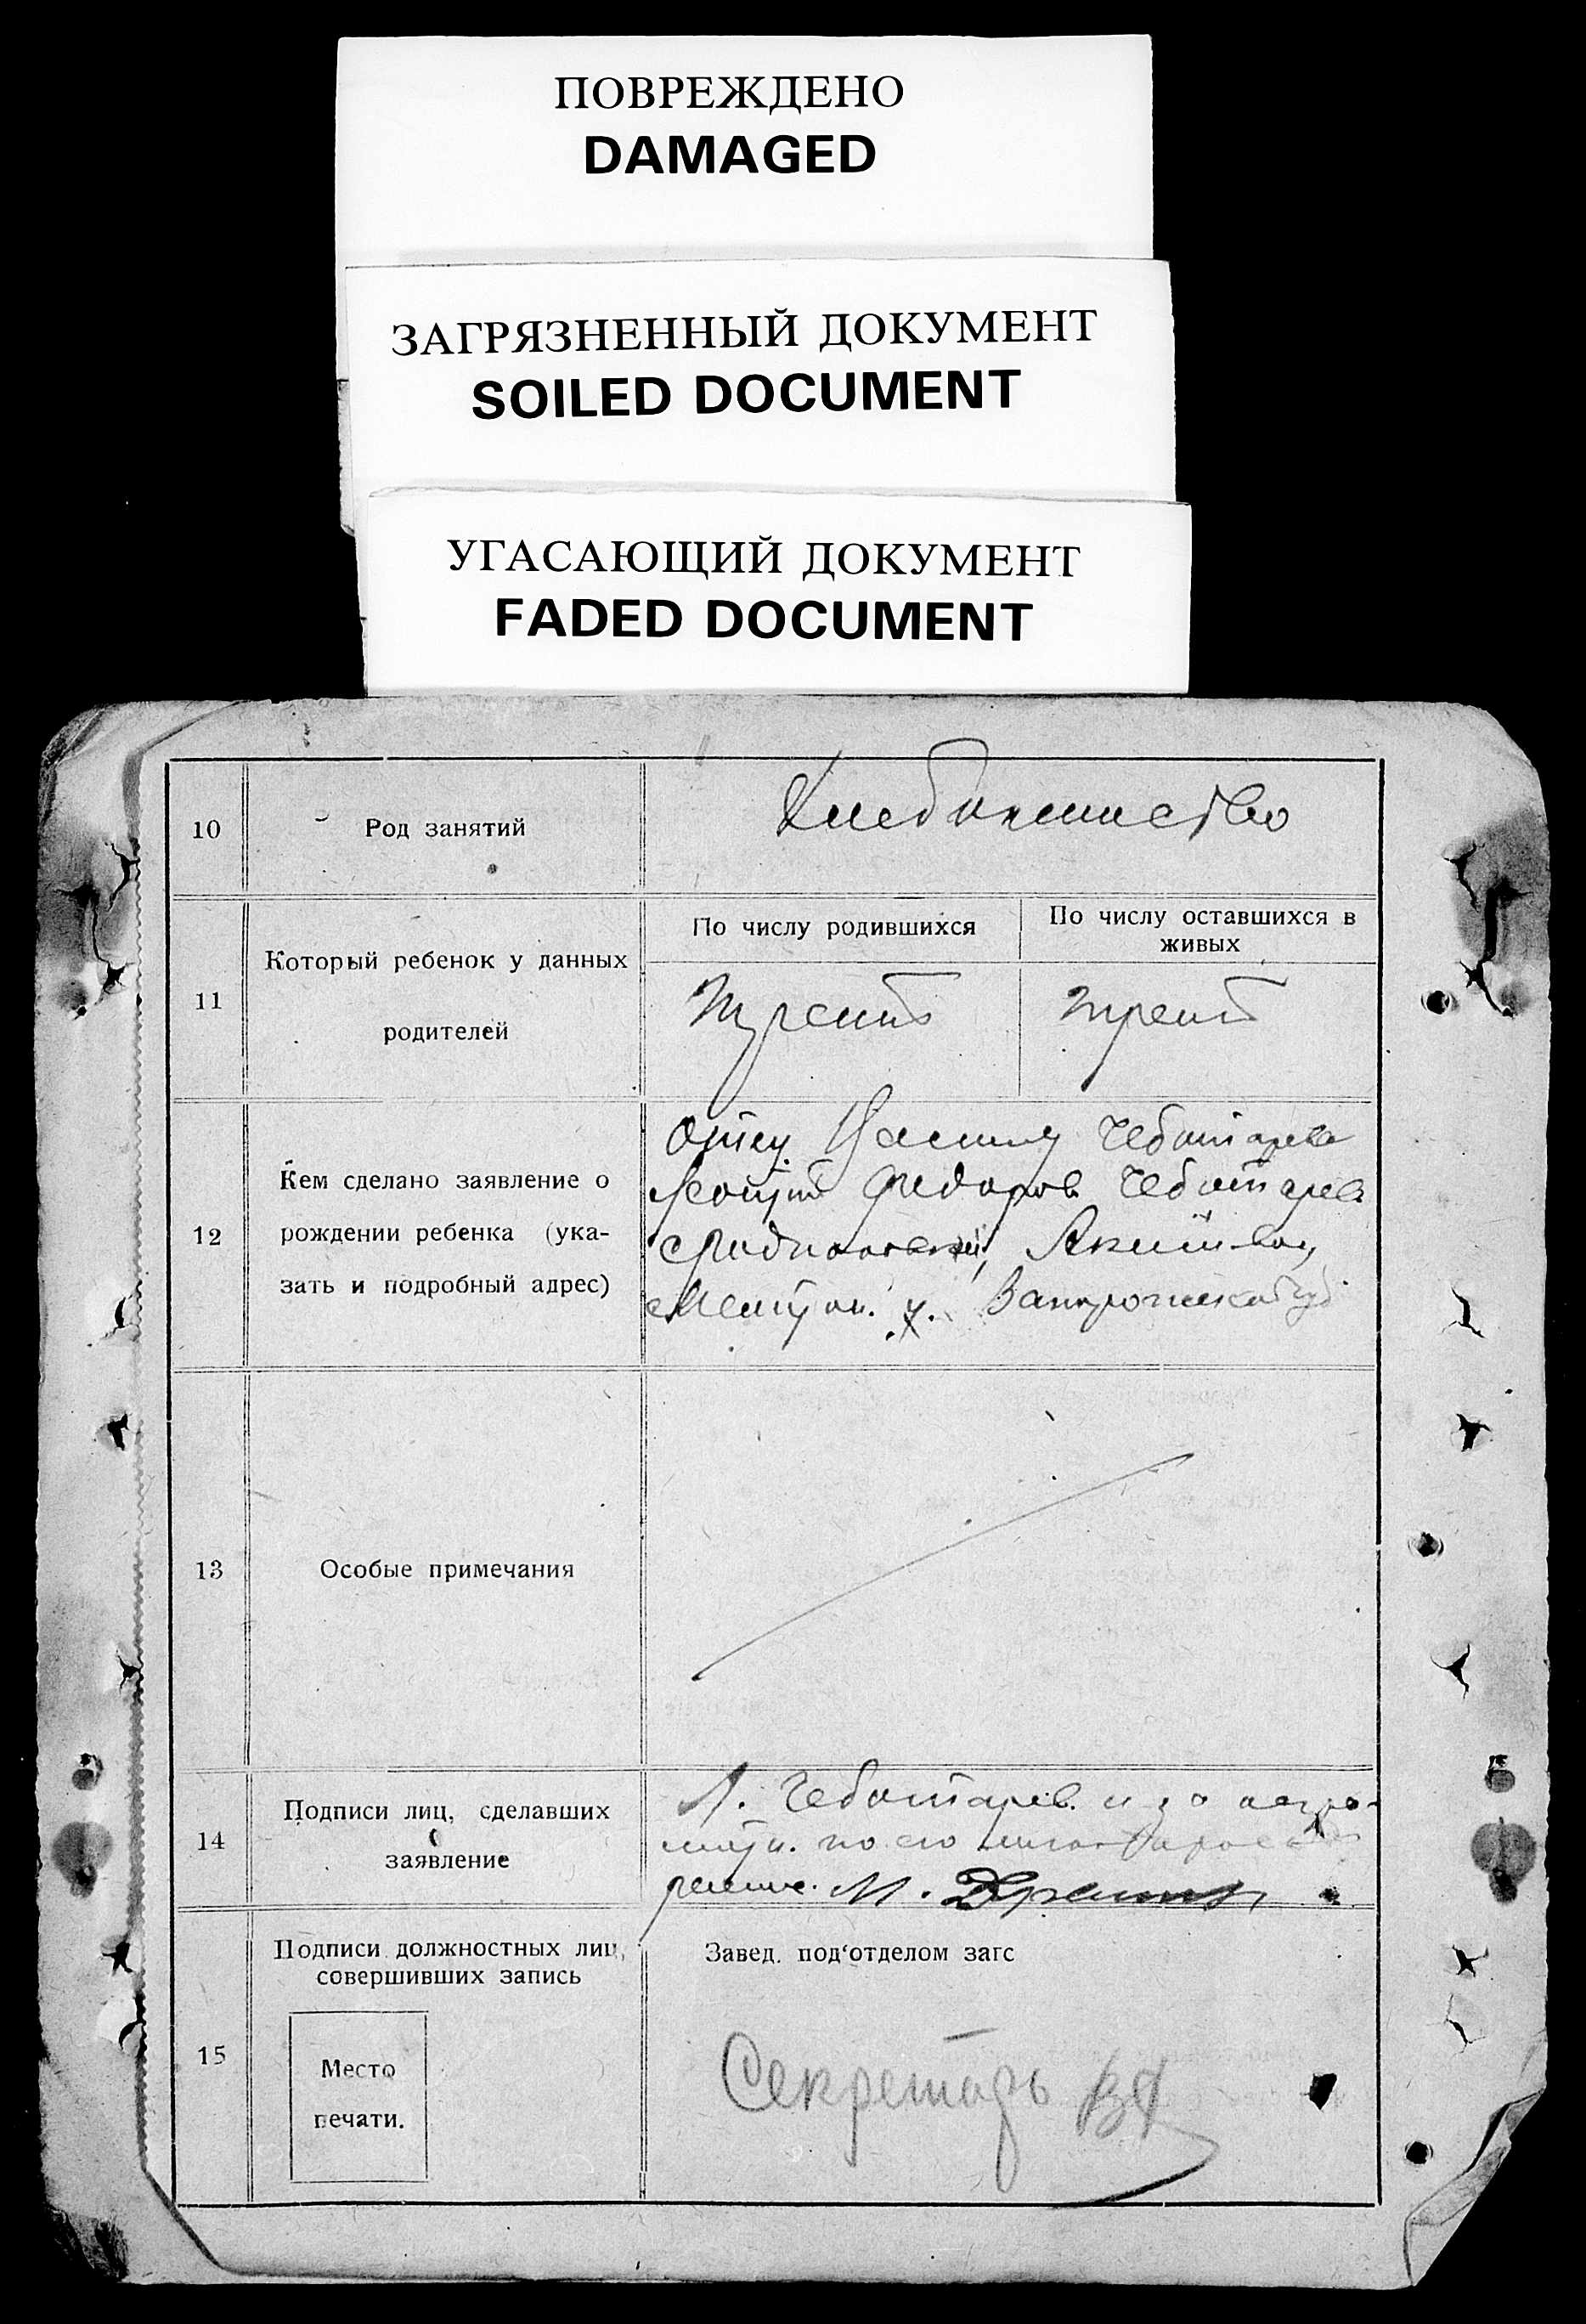 ПОВРЕЖДЕНО
DAMAGED
ЗАГРЯЗНЕННЫЙ ДОКУМЕНТ
SOILED DOCUMENT
УГАСАЮЩИЙ ДОКУМЕНТ
FADED DOCUMENT
10
Род занятий
Хлебопашество
11
Который ребенок у данных
родителей
По числу родившихся
По числу оставшихся в
живых
третий
12
Кем сделано заявление о
рождении ребенка (ука-
зать и подробный адрес)
Отец Чеботарев
Федоров Чеботарев
Мелитоп. у. Запорожской губ
13
Особые примечания
14
Подписи лиц, сделавших
заявление
Чеботарев и за
по его
М.
15
Подписи должностных лиц,
совершивших запись
Место
печати.
Завед. под‘отделом загс
Секретарь